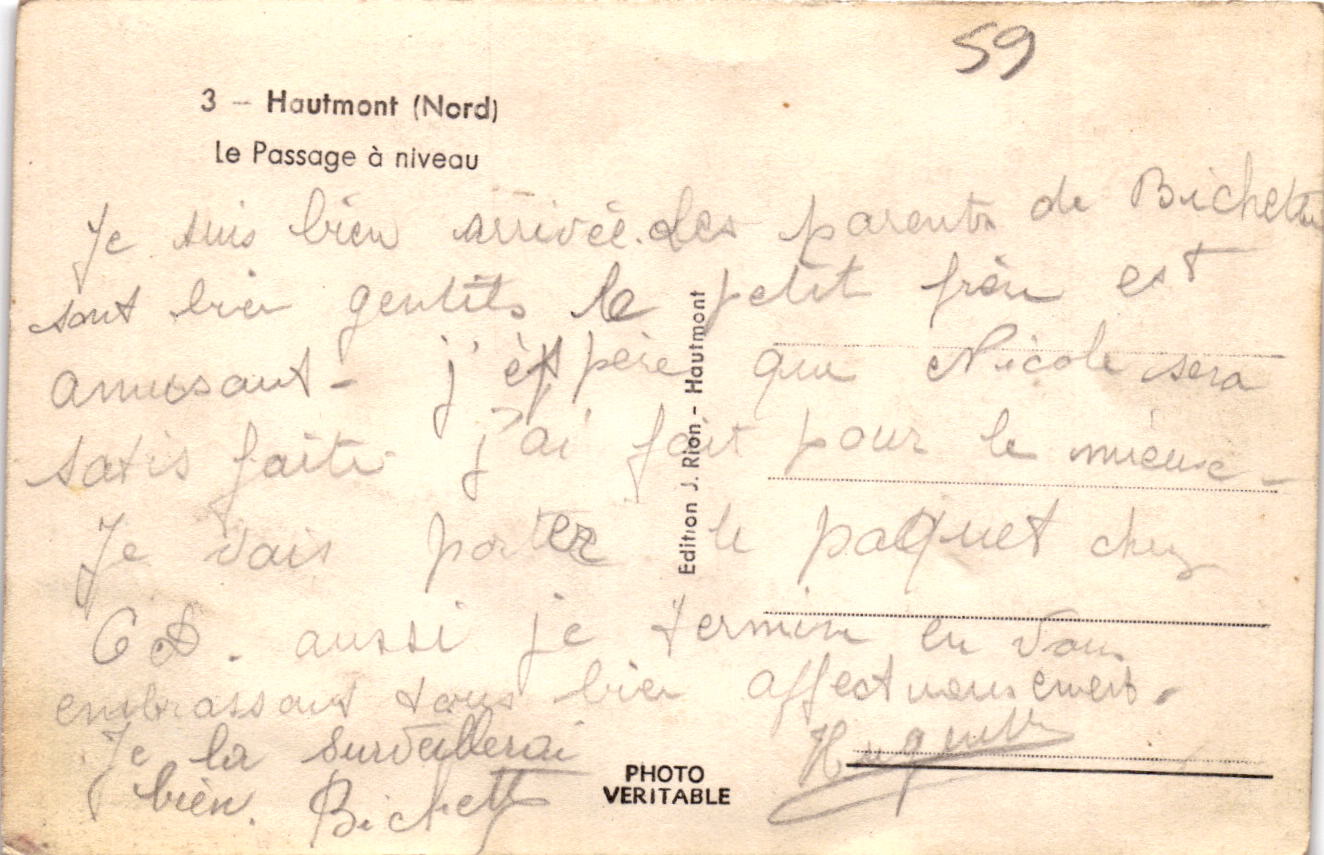 59
3 – Hautmont (Nord)
Le Passage à niveau
Je suis bien arrivée. Les parents de Bichette
sont bien gentils le petit frère est
amusant - j'éspère que Nicole sera
satis faite j'ai fait pour le mieux -
Je vais porter le paquet chez
aussi je termine en vous
embrassant tous bien affectueusement.
Huguette
Je la surveillerai
bien. Bichette
Edition J. Rion, - Hautmont
PHOTO
VERITABLE